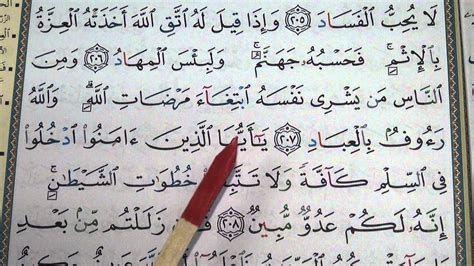 لَا يُحِبُّ الْفَسَادَ ٢٠٥ وَإِذَا قِيلَ لَهُ اتَّقِ اللَّهَ أَخَذَتْهُ الْعِزَّةُ
بِالْإِثْمِ فَحَسْبُهُ جَهَنَّمُ وَلَبِئْسَ الْمِهَادُ ٢٠٦ وَمِنَ
النَّاسِ مَن يَشْرِي نَفْسَهُ ابْتِغَاءَ مَرْضَاتِ اللَّهِ وَاللَّهُ
رَءُوفٌ بِالْعِبَادِ ٢٠٧ يَا أَيُّهَا الَّذِينَ ءَامَنُوا ادْخُلُوا
فِي السِّلْمِ كَافَّةً وَلَا تَتَّبِعُوا خُطُوَاتِ الشَّيْطَانِ
إِنَّهُ لَكُمْ عَدُوٌّ مُّبِينٌ ٢٠٨ فَإِن زَلَلْتُم مِّن بَعْدِ